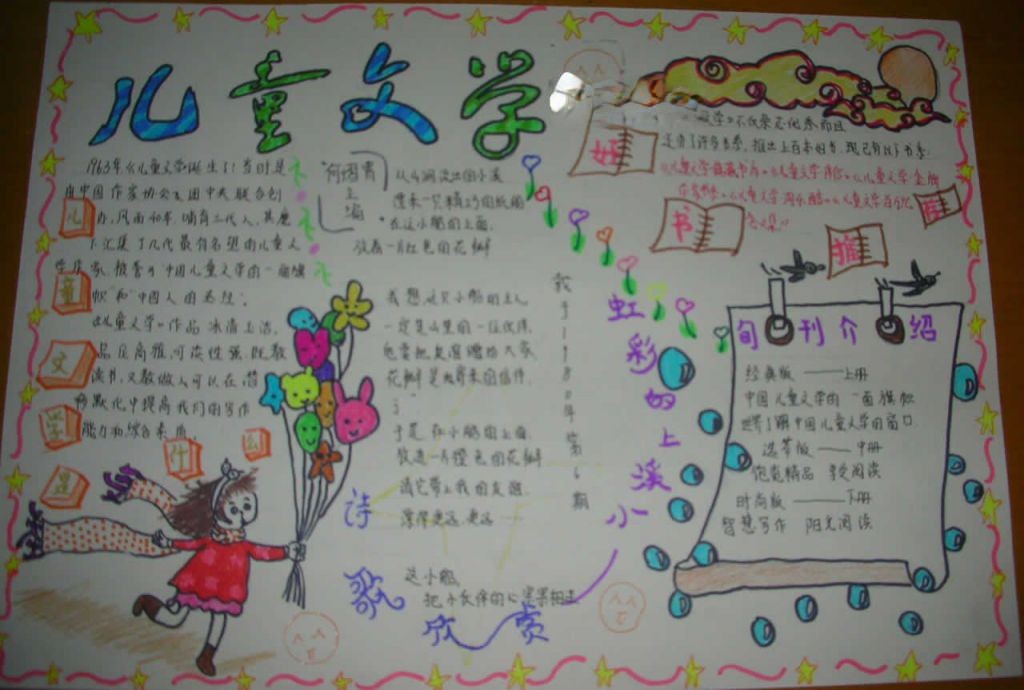 儿童文学
1963年《儿童文学》诞生了!当时是
由中国作家协会和团中央联合创
办,风雨40年,哺育三代人,其麾
下汇集了几代最有名望的儿童文
学作家,被誉为"中国儿童文学的一面旗
帜"和"中国人的圣经"。
《儿童文学》作品冰清玉洁,
品位高雅,可读性强,既教
读书,又教做人可以在潜
移默化中提高我们的写作
能力和综合素质
儿
童
文
学
是
什
么
主编
从山涧流出的小溪
漂来一只精巧的纸船
在这小船的上面,
放着一片红色的花瓣
我想这只小船的主人
一定是山里的一位伙伴,
他要把友谊赠给大家,
花瓣是捎来的信件,
于是,在小船的上面,
放进一片橙色的花瓣
请它带上我的友谊
漂得更远,更远……
这小船,
把小伙伴的心儿紧相连
载于1980年第6期
小溪上的彩虹
诗歌欣赏
好
书
推
荐
文学》不仅杂志优秀而且
还办了许多书系,推出上百本好书,现已有以下书系:
旬刊介绍
经典版——上册
中国儿童文学的一面旗帜
世界了解中国儿童文学的窗口
选萃版——中册
饱览精品 享受阅读
时尚版——下册
智慧写作 阳光阅读